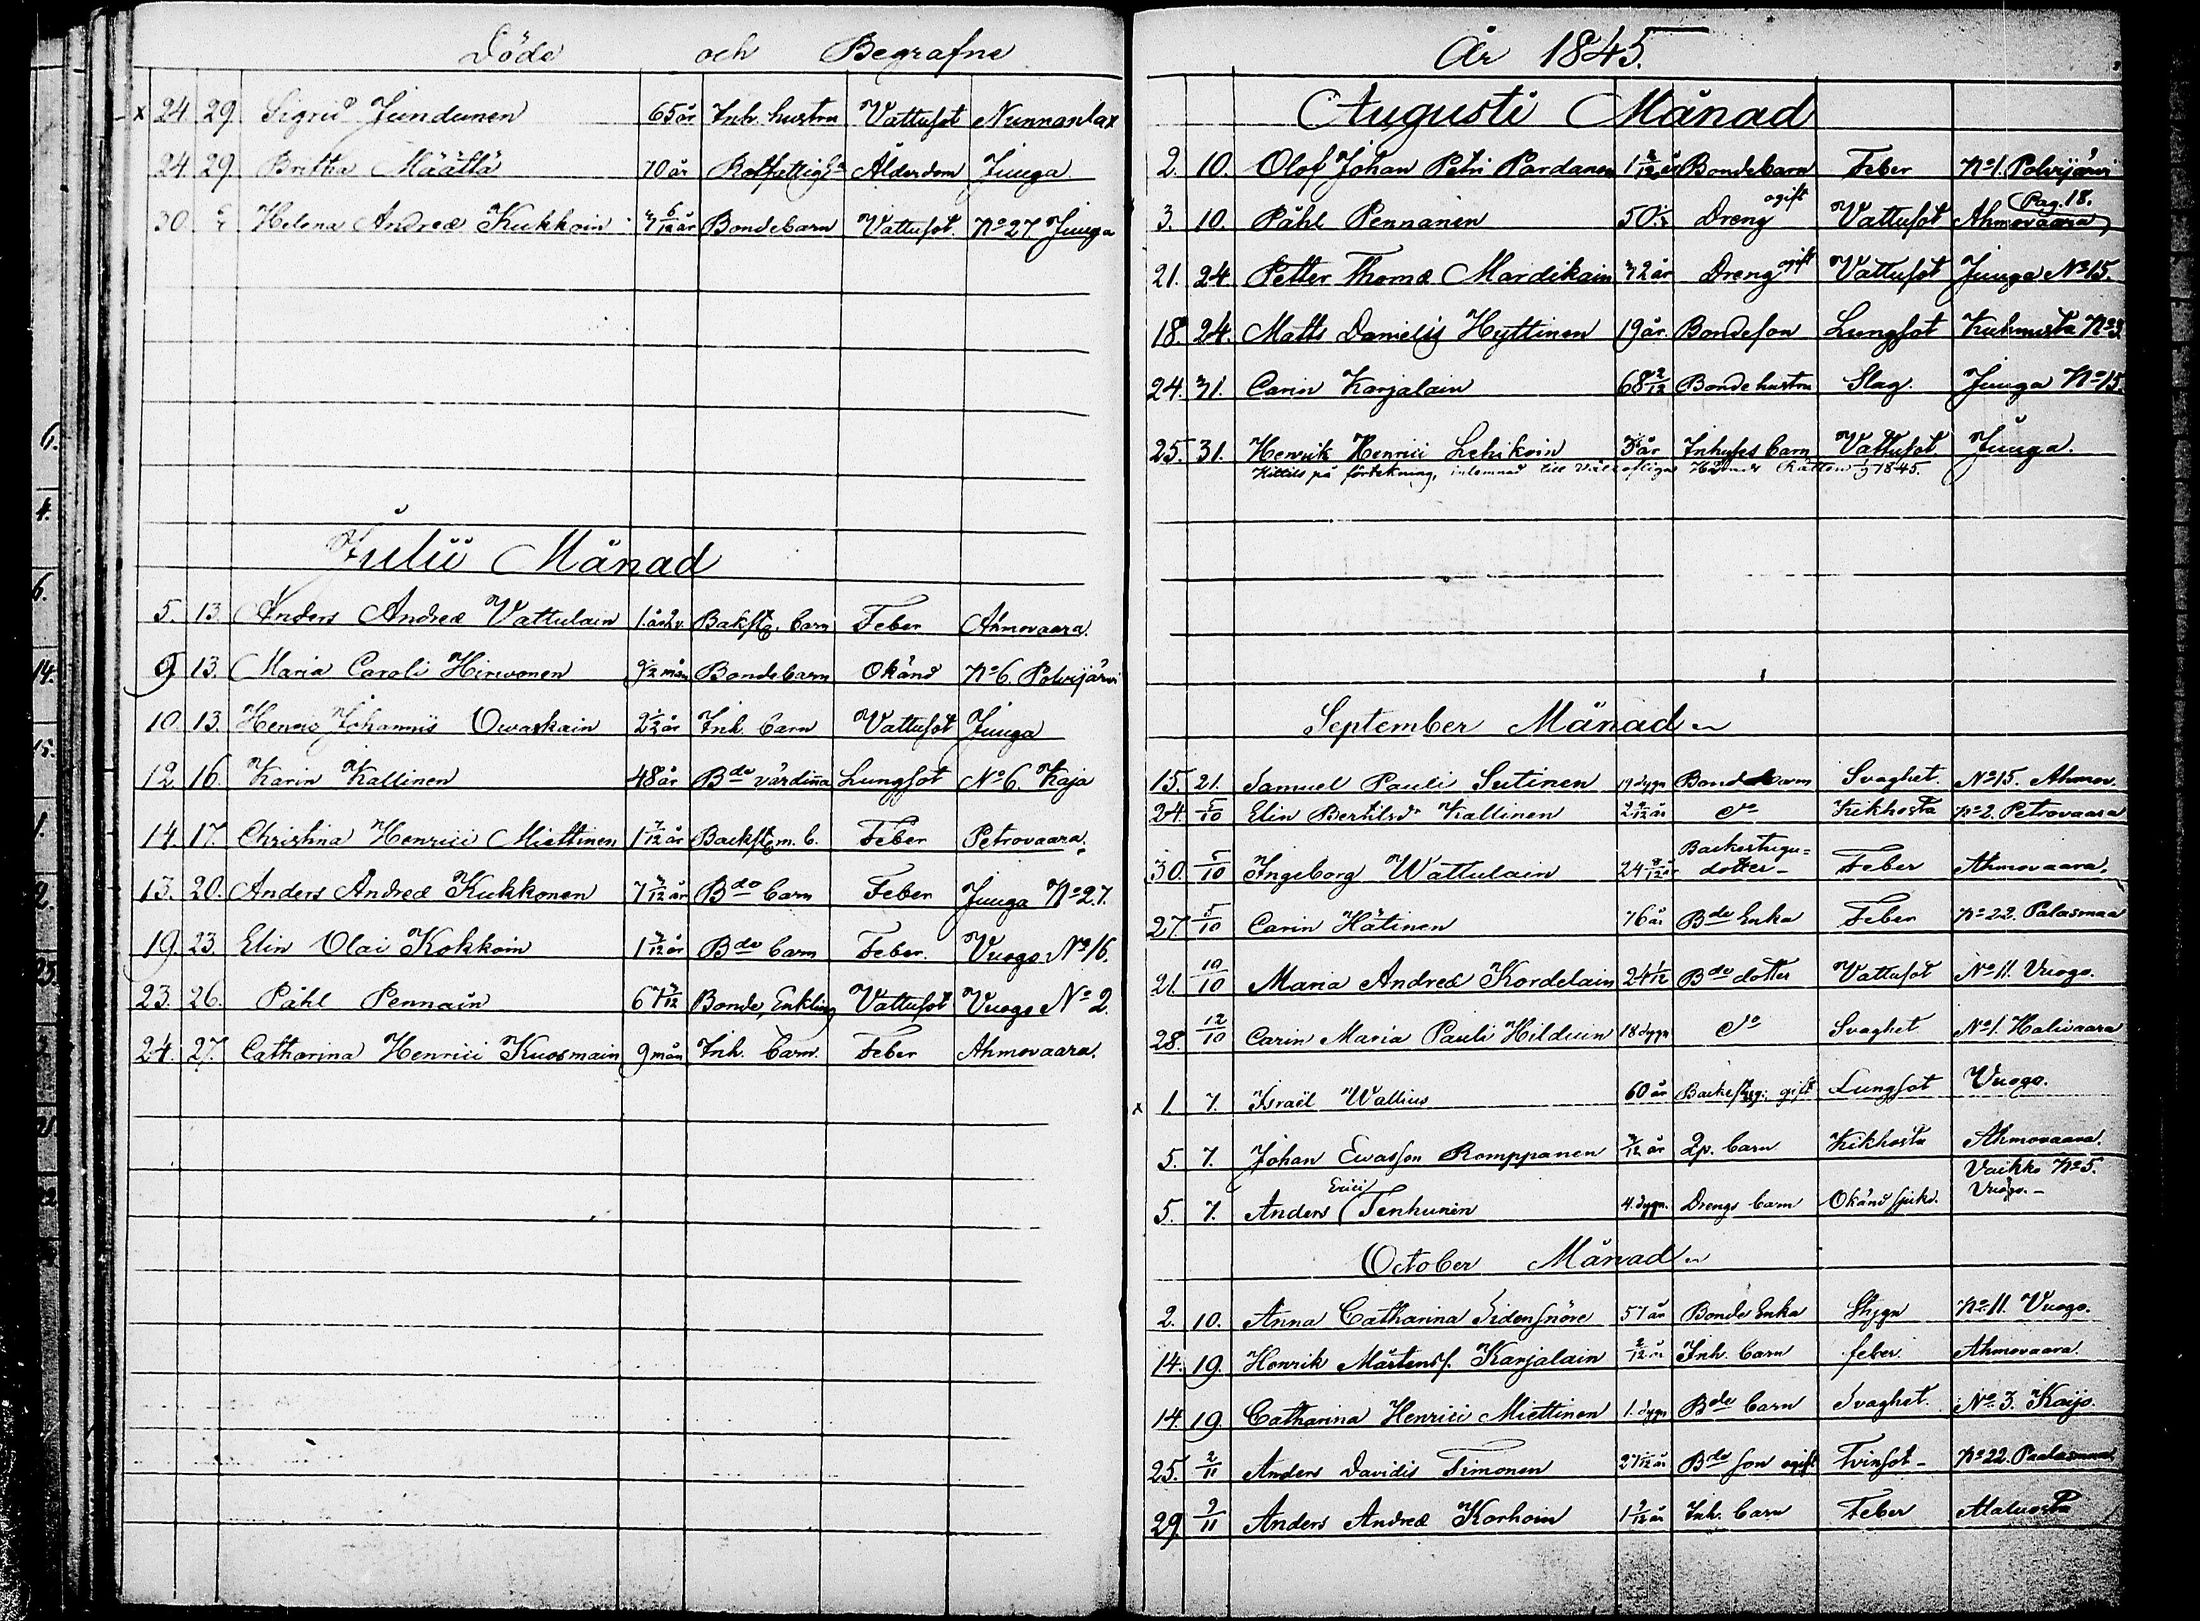 Döde och Begrafne
x 24 29 Sigrid Jundunen 65 år Inh. hustru Vattusot Nunnanlax
24 29 Britha Määttä 70 år Rotfattig Ålderdom Juuga
30 Helena Andreæ Kukkoin 6/12 år Bondebarn Vattusot. No 27 Juuga
Julii Månad
5. 13 Anders Andreæ Vattulain 1 år Bakstg. barn Feber Ahmovaara.
9 13. Maria Caroli Hirwonen 9 1/2 mån Bondebarn Okänd No 6. Polvijärvi
10. 13. Henric Johannis Owaskain 2 1/2 år Inh. barn Vattusot Juuga
12 16. Karin Kallinen 48 år Bde värdinna Lungsot No 6. Kaja
14. 17. Christina Henrici Miettinen 1 7/12 år Backstgm. b. Feber Petrovaara.
13. 20. Anders Andreæ Kukkonen 7 3/12 år Bde barn Feber Juuga No 27.
19. 23. Elin Olai Kokkoin 1 3/12 år Bde barn Feber. Vuogo No 16.
23. 26. Påhl Pennain 67 7/12 Bonde, Enkling Vattusot Vuogo No 2.
24. 27. Catharina Henrici Kuosmain 9 mån Inh. barn. Feber Ahmovaara.
År 1845.
Augusti Månad
2. 10. Olof Johan Petri Pardanen 1 2/12 år Bondebarn Feber No 1. Polvijärvi
3. 10. Påhl Pennanen 50 Dreng ogift Vattusot Ahmovaara Pag. 18.
21. 24 Petter Thomæ Mardikain 32 år Dreng ogift Vattusot Juuga No 15.
18. 24. Matts Danielis Hyttinen 19 år. Bondeson Lungsot Kuhnusta No 3.
24. 31. Carin Karjalain 68 2/12 Bondehustru Slag. Juuga No 15.
25. 31. Henrik Henrici Lehikoin 3 år Inhyses barn Vattusot Juuga.
Hittils på förtekning, inlemnad till 1845.
September Månad
15. 21. Samuel Pauli Sutinen 19 dygn Bondebarn Svaghet. No 15. Ahmov.
24. 5/10 Elin Bertilsdr Kallinen 2 9/12 år do Kikhosta No 2. Petrovaara
30. 5/10 Ingeborg Wattulain 24 9/12 år Backestugu=dotter Feber Ahmovaara.
27 5/10 Carin Hätinen 76 år Bde Enka Feber No 22. Palasmaa
21. 10/10 Maria Andreæ Kordelain 24 1/12 Bde dotter Vattusot No 11. Vuogo.
28. 12/10 Carin Maria Pauli Hilduin 18 dygn do Svaghet No 1. Halivaara
x 1. 7. Israël Wallius 60 år Backestug: gift Lungsot Vuogo.
5. 7. Johan Evasson Romppanen 3/12 år Lp. barn Kikhosta Ahmovaara.
5. 7. Anders Erici Tenhunen 4. dygn. Drengs barn Okänd sjukd. Vaikko No 5. Vuogo.
October Månad
2. 10. Anna Catharina Sidensnöre 57 år Bonde Enka Stygn No 11. Vuogo.
14. 19. Henrik Mårtenss. Karjalain 2/12 år Inh. barn feber Ahmovaara.
14. 19. Catharina Henrici Miettinen 1. dygn Bde barn Svaghet. No 3. Kaijo.
25. 2/11 Anders Davidis Timonen 27 år Bde son ogift Tvinsot No 22. Paalasmaa
29. 9/11 Anders Andreæ Korhoin 1 9/12 år Inh. barn Feber